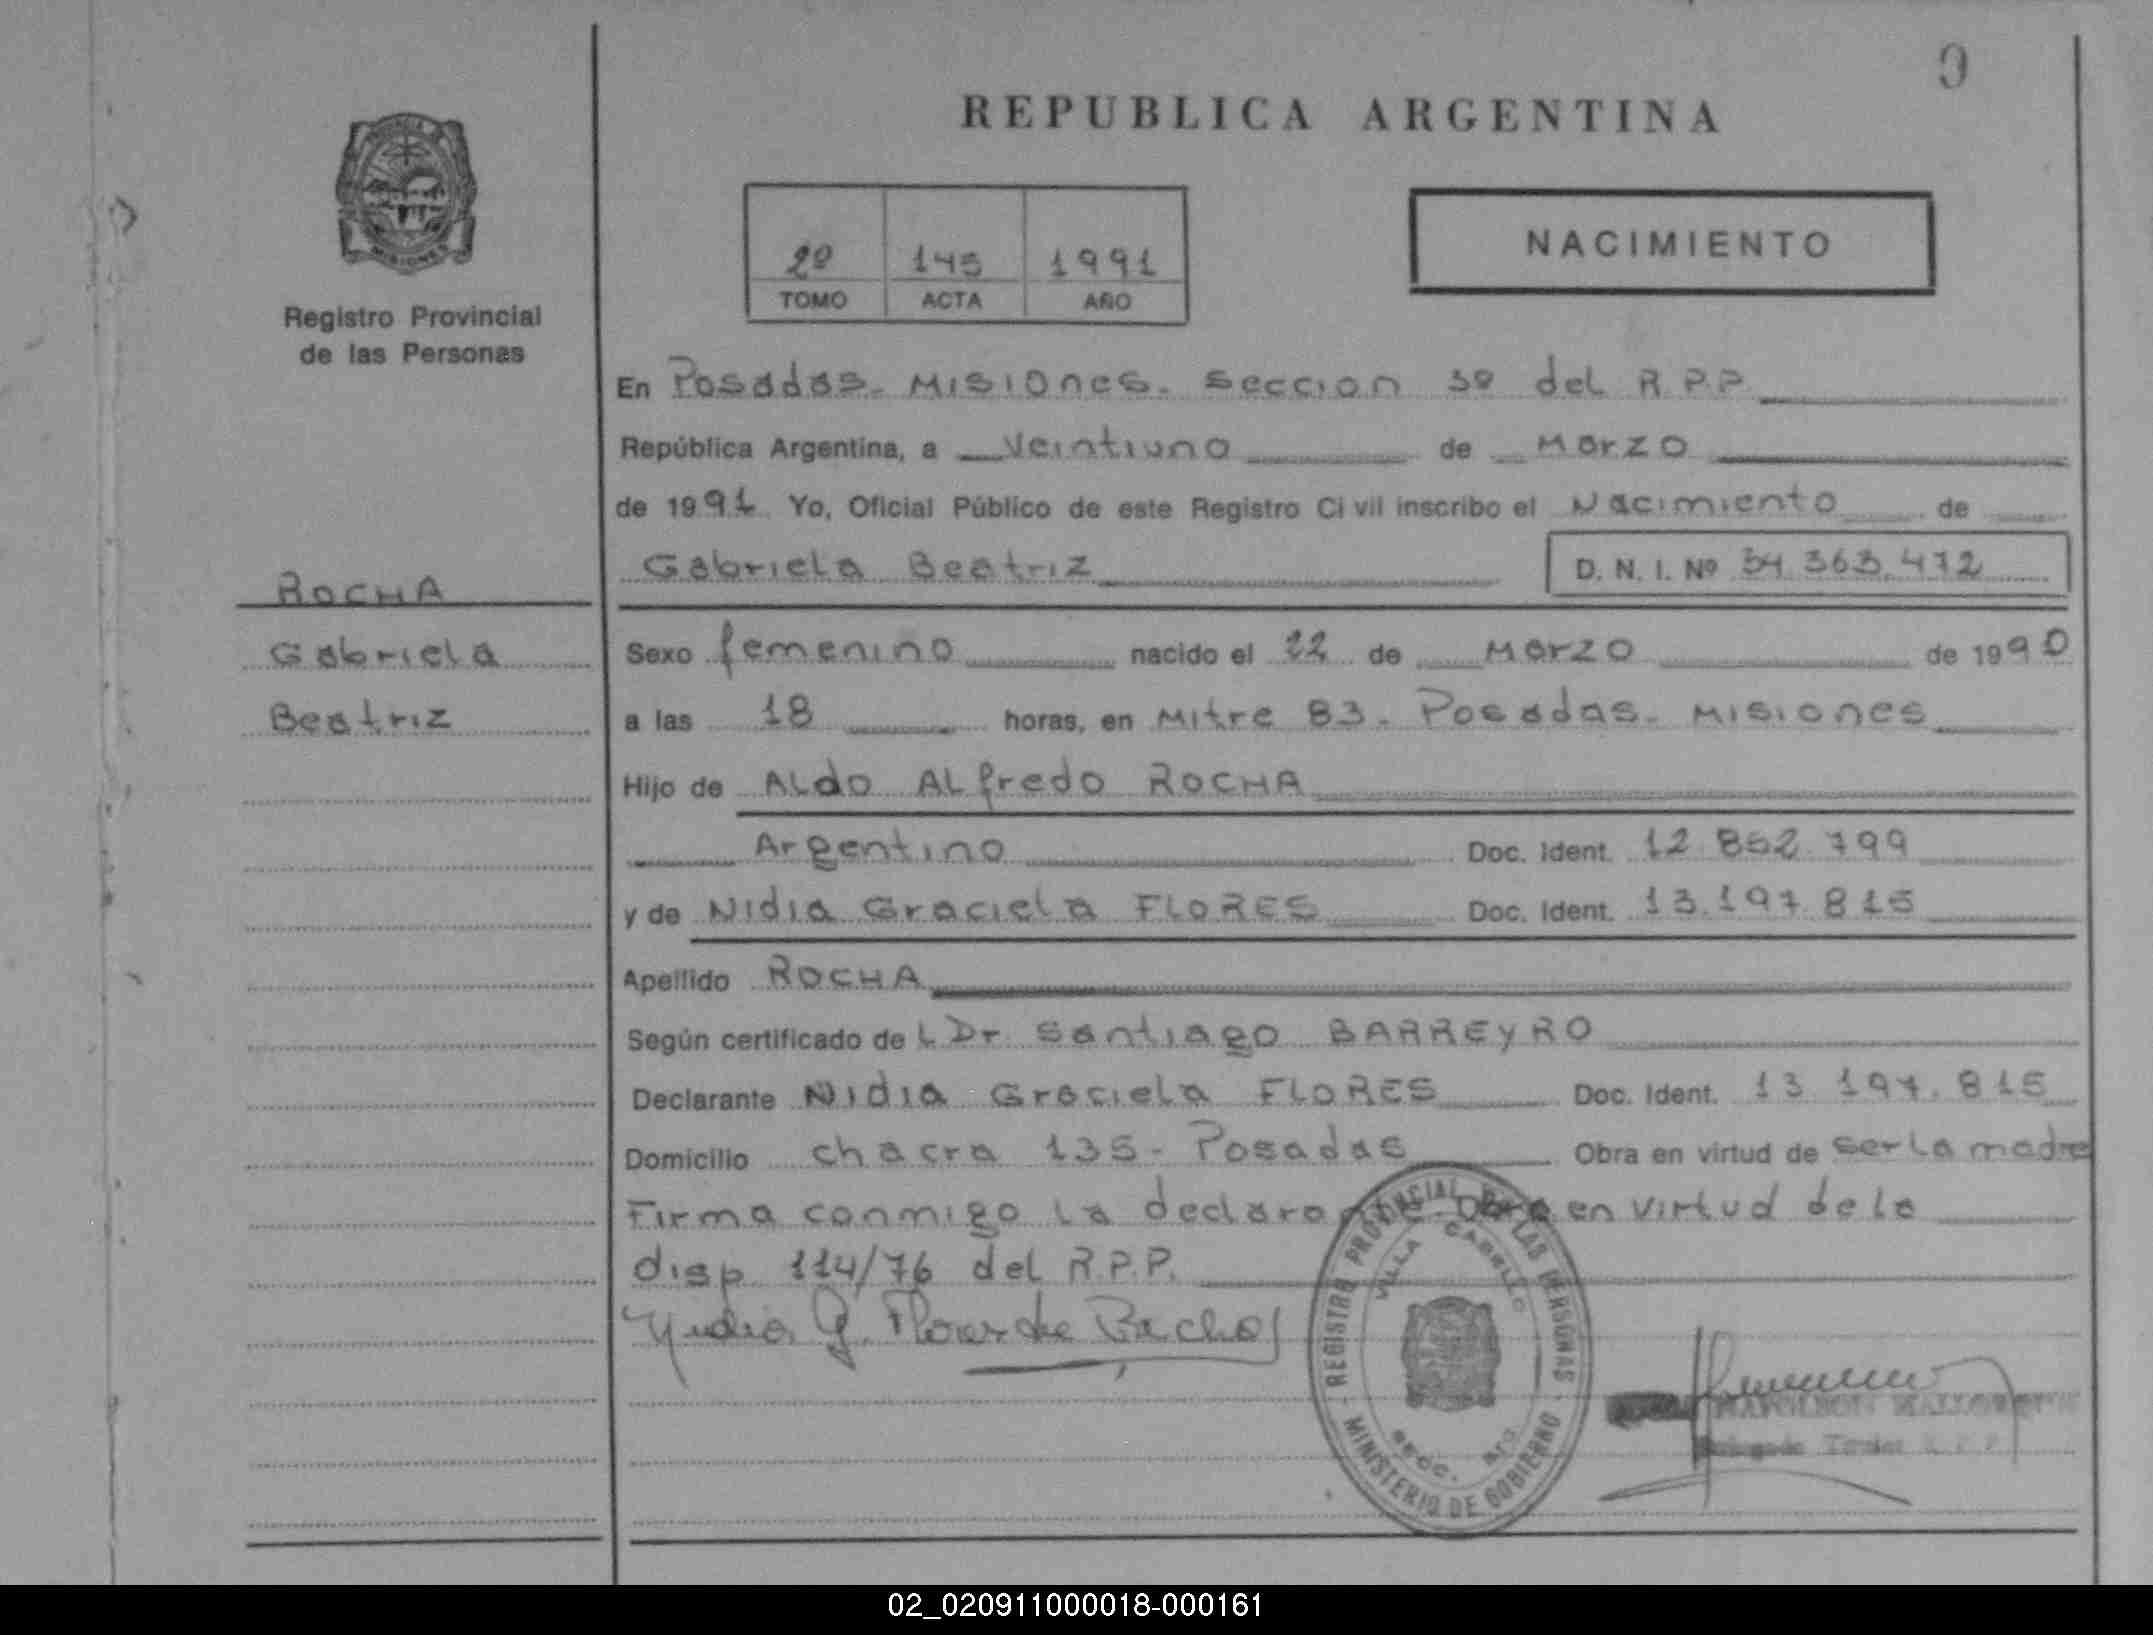 REPUBLICA ARGENTINA
Registro Provincial
de las Personas
2º 145 1991
TOMO ACTA AÑO
NACIMIENTO
En Posadas - Misiones - Seccion 3º del R.P.P.
República Argentina, a Veintiuno de Marzo
de 1991 Yo, Oficial Público de este Registro Civil inscribo el Nacimiento de
Gabriela Beatriz D. N. I. Nº 34.363.472
ROCHA
Gabriela
Beatriz
Sexo femenino nacido el 22 de Marzo de 1990
a las 18 horas, en Mitre 83 - Posadas - Misiones
Hijo de Aldo Alfredo ROCHA
Argentino Doc. Ident. 12.852.799
y de Nidia Graciela FLORES Doc. Ident. 13.197.815
Apellido ROCHA
Según certificado de L Dr. Santiago BARREyRO
Declarante Nidia Graciela FLORES Doc. Ident. 13.197.815
Domicilio chacra 135 - Posadas Obra en virtud de ser la madre
Firma conmigo la declara en virtud de la
disp 114/76 del R.P.P.
REGISTRO PROVINCIAL DE LAS PERSONAS
VILLA CABELLO
MINISTERIO DE GOBIERNO
02_020911000018-000161